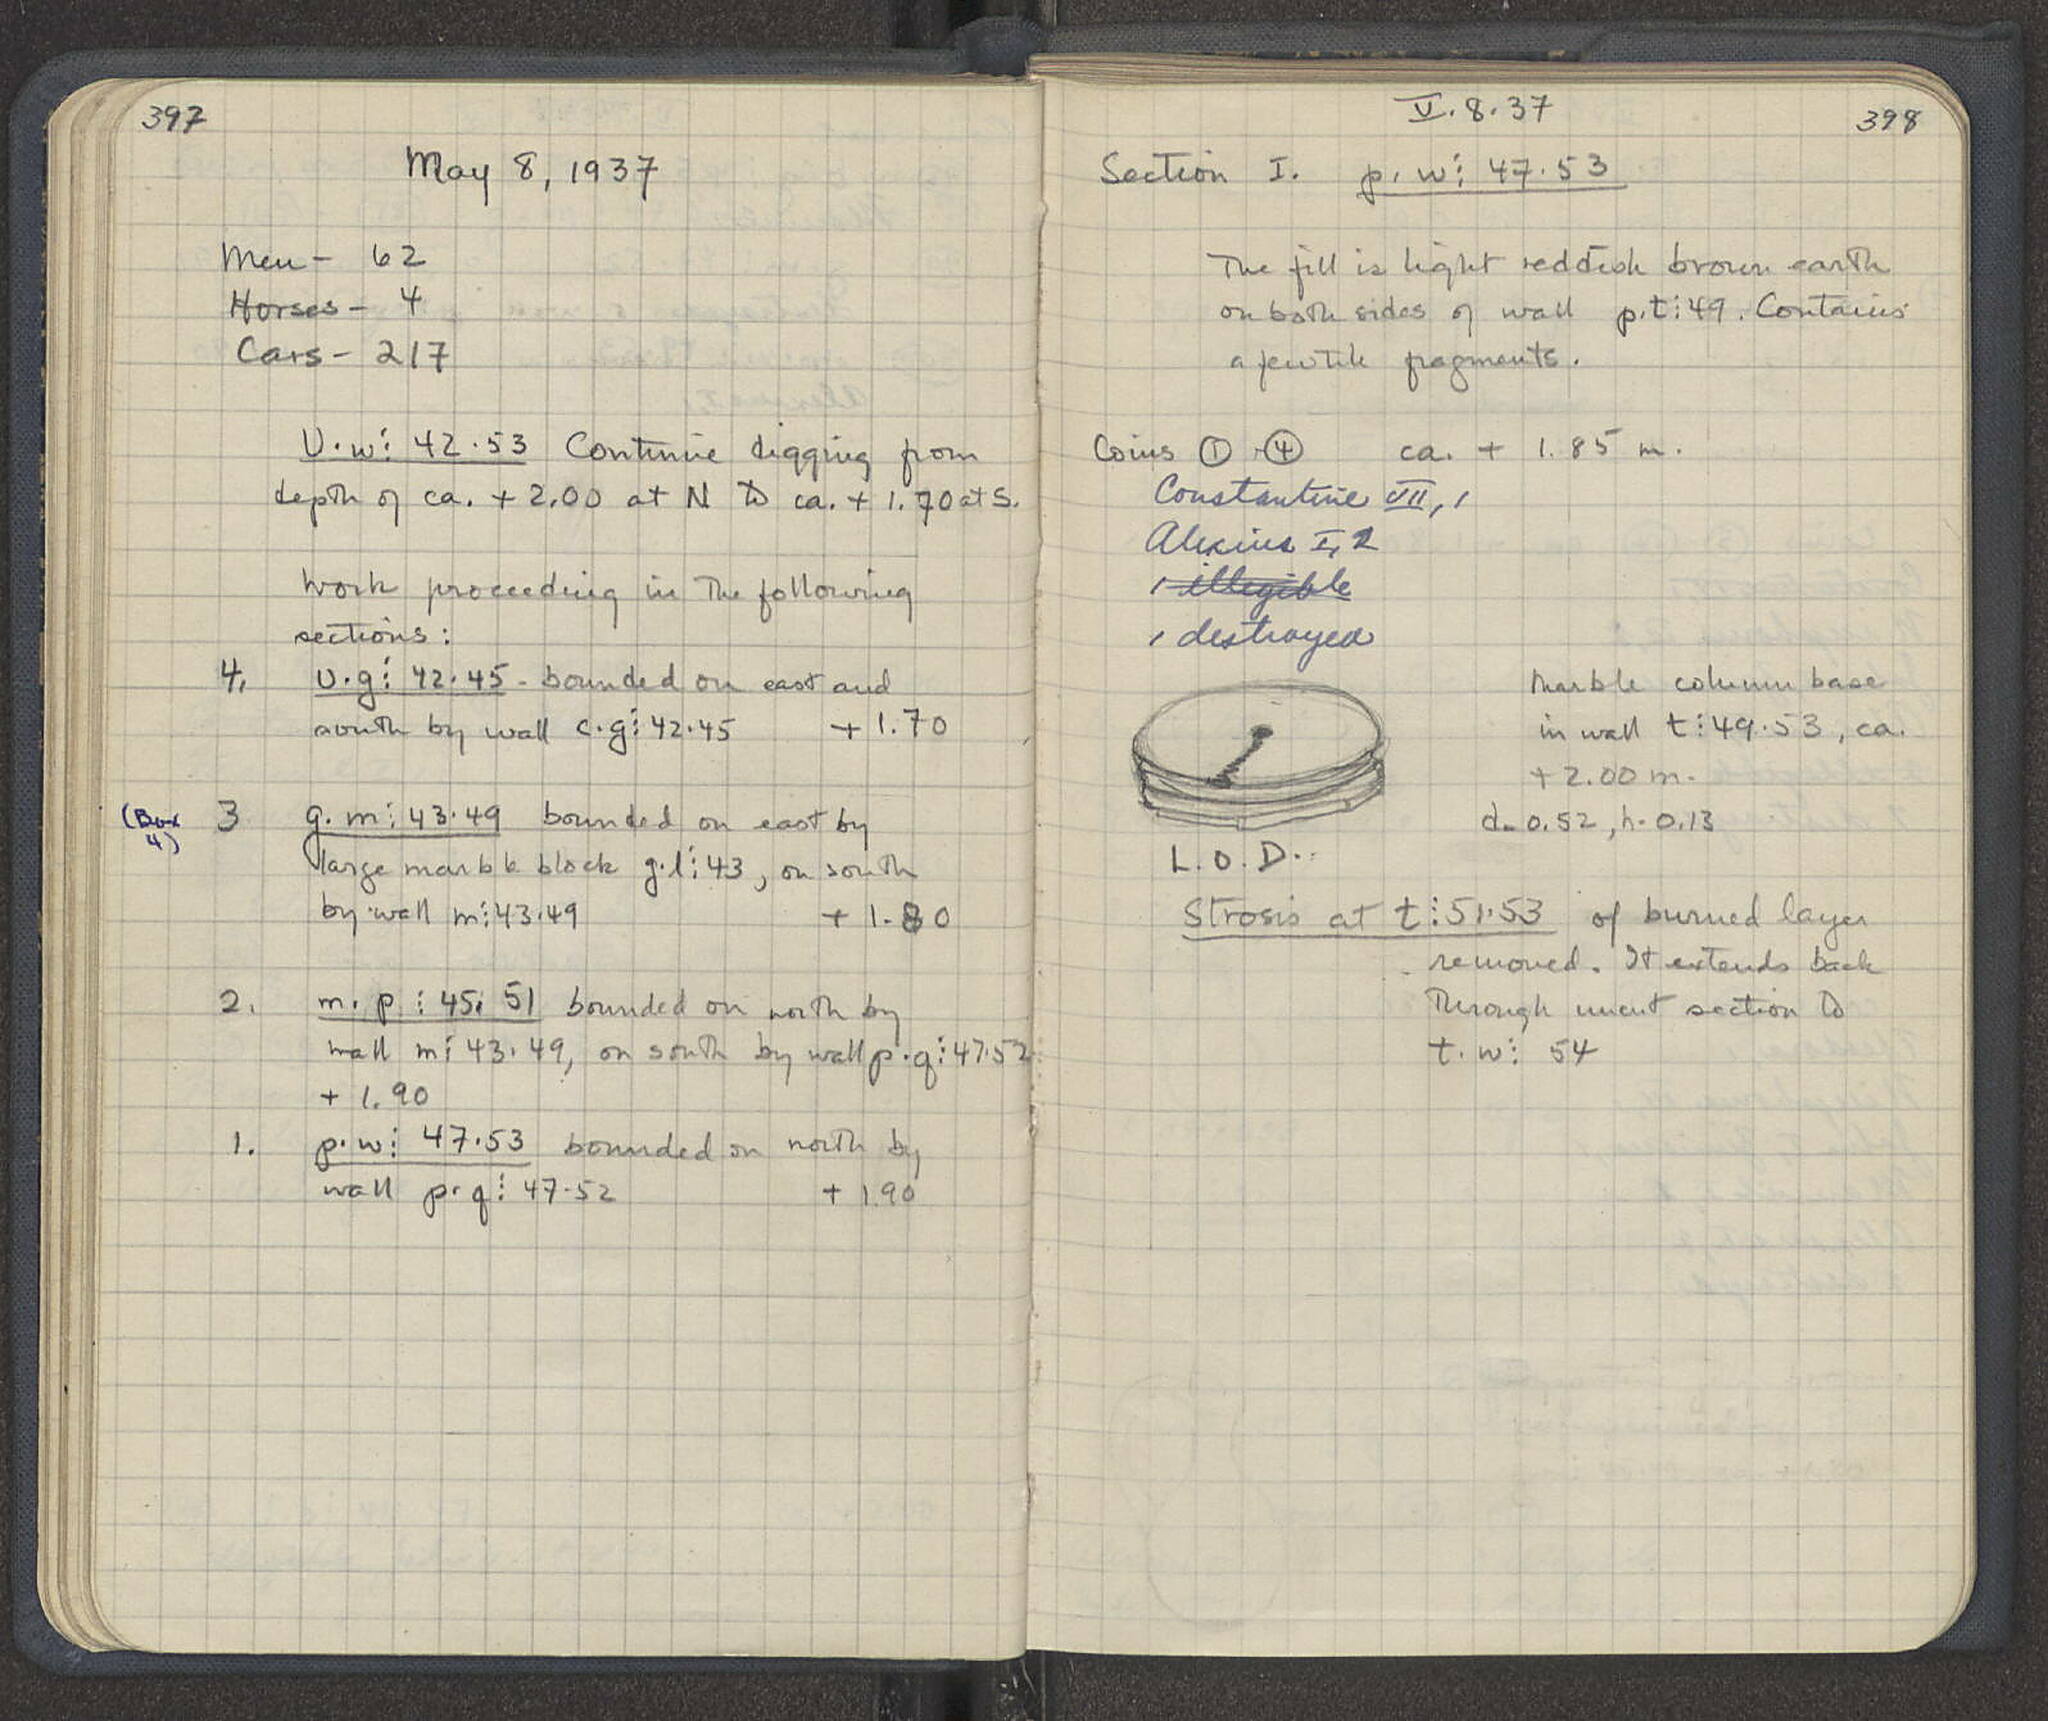 397
May 8, 1937
Men - 62
Horses - 4
Cars - 217
U.w⋮ 42.53 Continue digging from
depth of ca. + 2.00 at N to ca. + 1.70 at S.
Work proceeding in the following
sections:
4. U.g⋮ 42.45 - bounded on east and
south by wall c.g⋮42.45 + 1.70
(Box
4)
3 g.m⋮43.49 bounded on east by
large marble block g.l⋮43, on south
by wall m⋮43.49 + 1.80
2. m.p⋮45.51 bounded on north by
wall m⋮43.49, on south by wall p.q⋮47.52
+ 1.90
1. p.w⋮ 47.53 bounded on north by
wall p.q⋮ 47.52 + 1.90
V.8.37
398
Section I. p.w⋮ 47.53
The fill is light reddish brown earth
on both sides of wall p.t⋮49. Contains
a few tile fragments.
Coins ① - ④ ca. + 1.85 m.
Constantine VII, 1
Alexius I, 2
1 illegible
1 destroyed
Marble column base
in wall t⋮49.53, ca.
+ 2.00 m.
d. 0.52, h. 0.13
L.O.D.
Strosis at t⋮51.53 of burned layer
removed. It extends back
through uncut section to
t.w⋮ 54